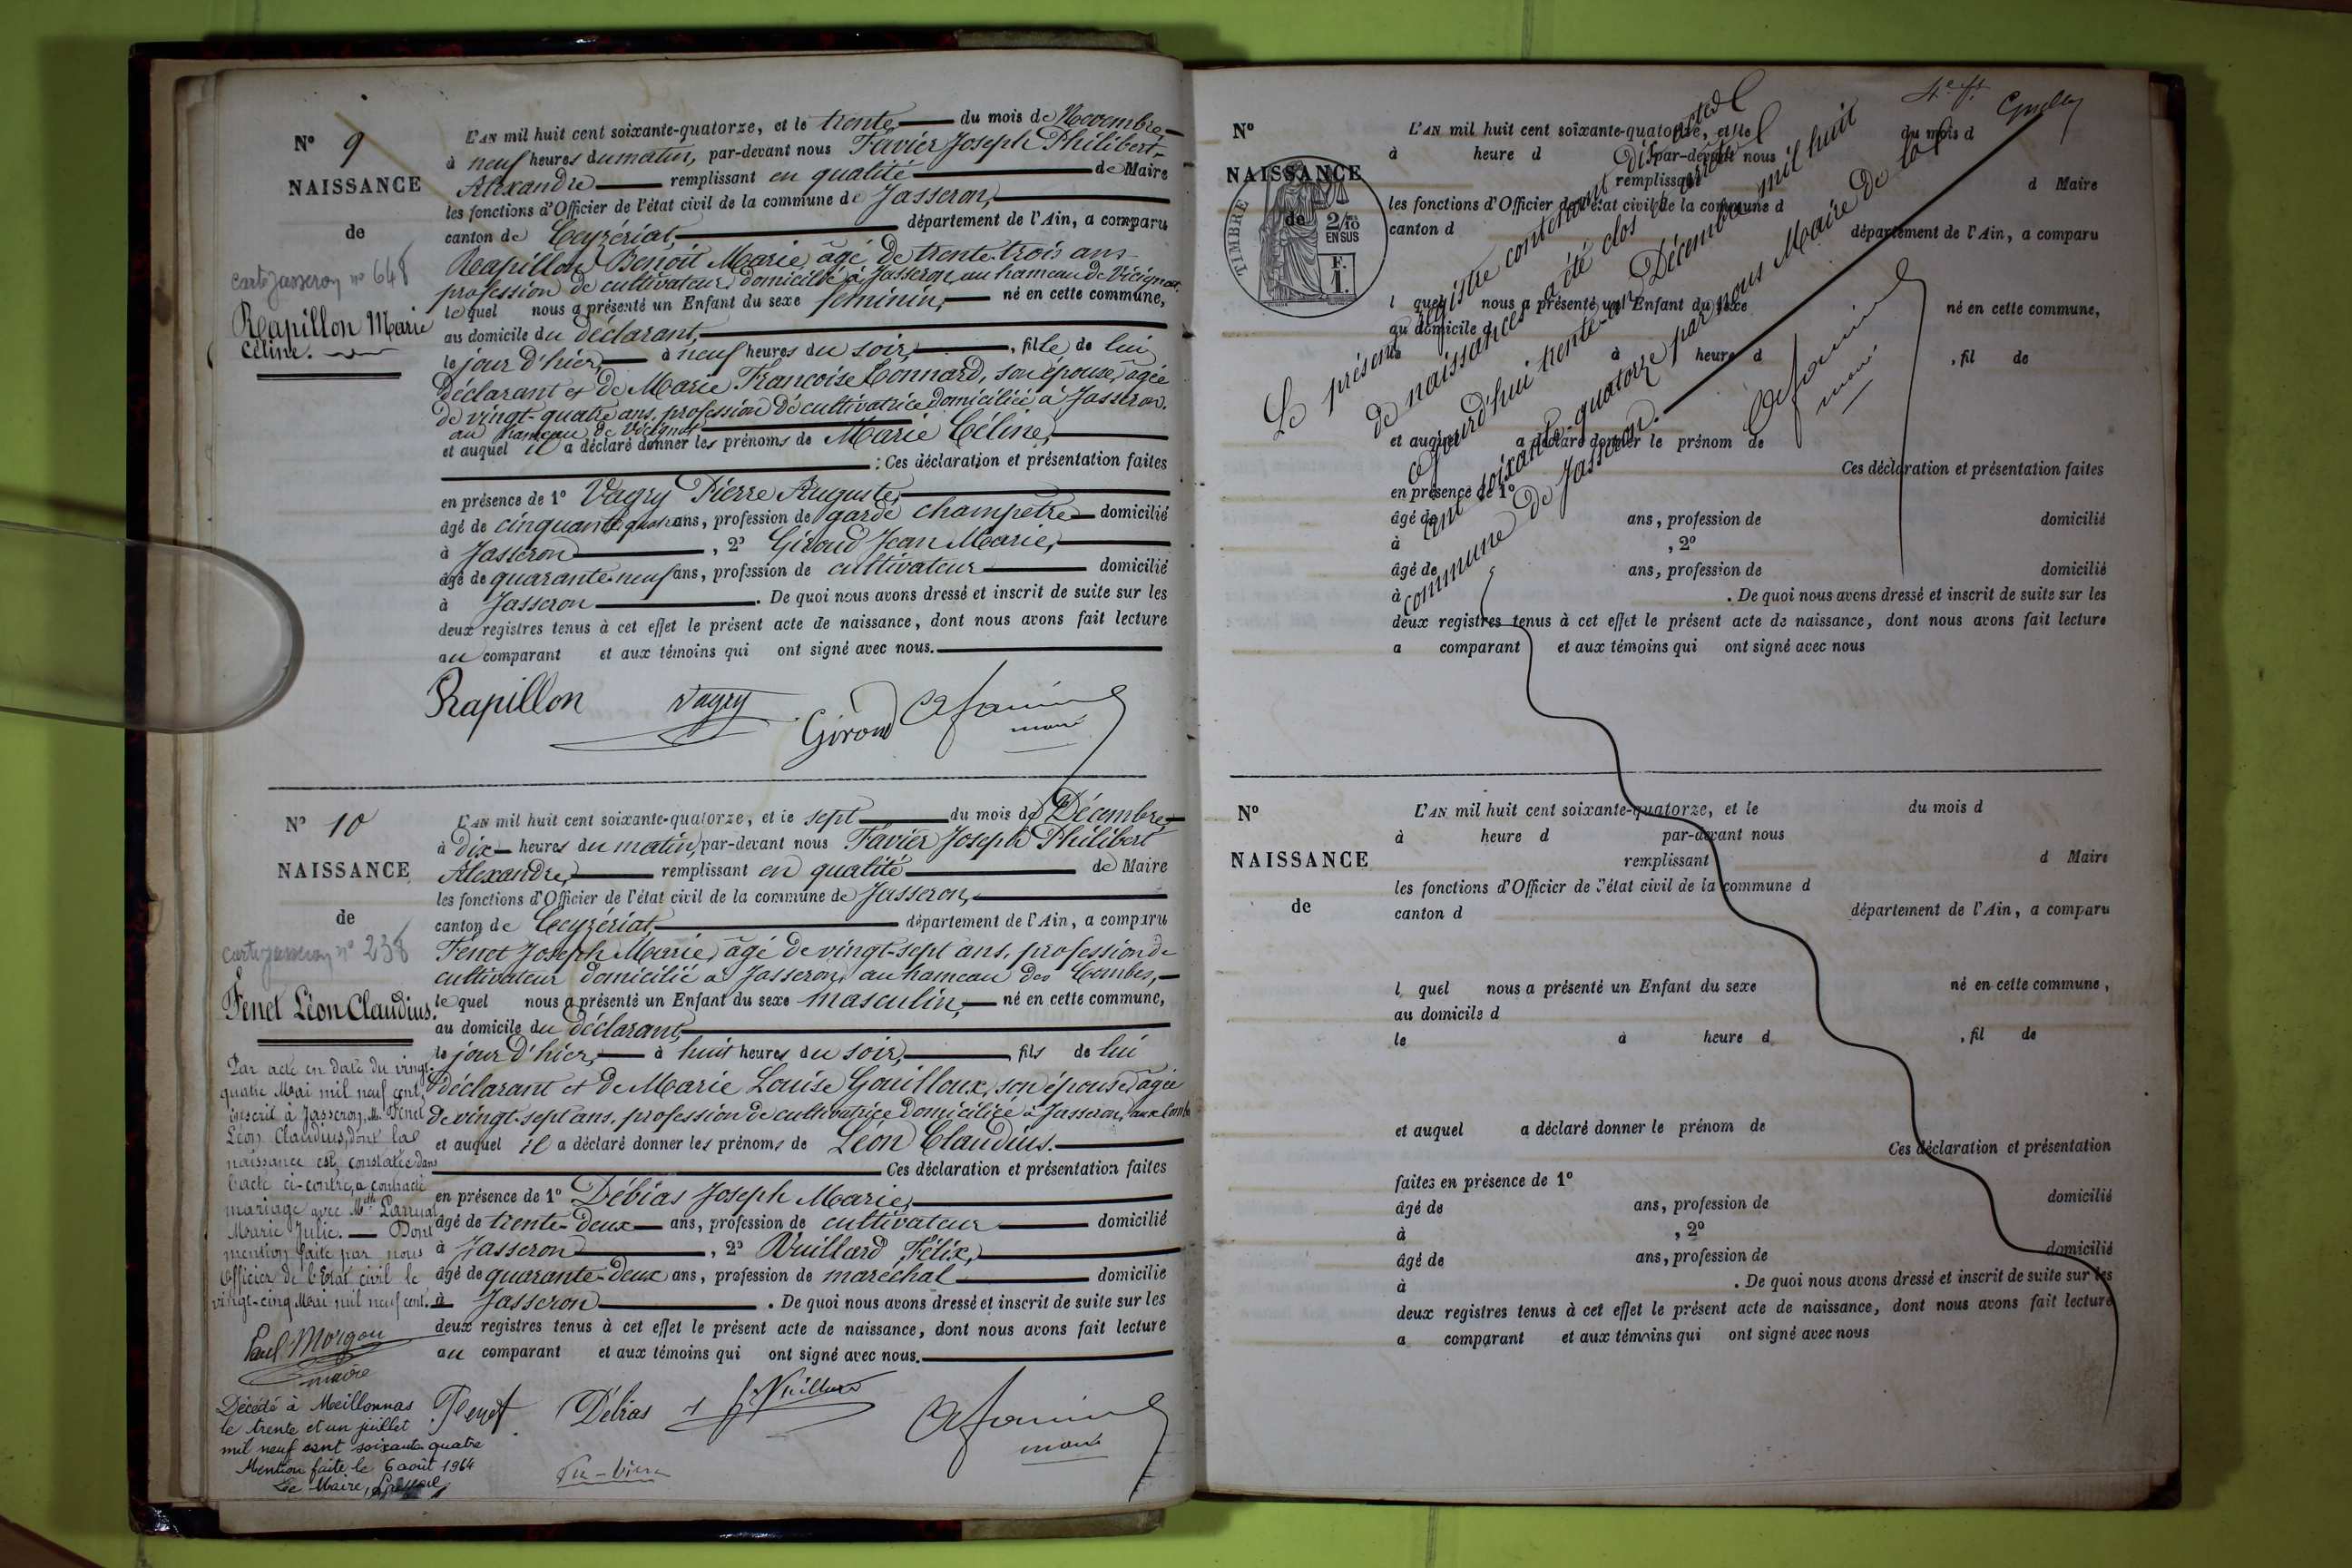 N° 9
NAISSANCE
de
carte Jasseron n° 648
Rapillon Marie
Céline.
L'AN mil huit cent soixante-quatorze, et le trente du mois de Novembre,
à neuf heures du matin, par-devant nous Favier Joseph Philibert
Alexandre remplissant en qualité de Maire
les fonctions d'Officier de l'état civil de la commune de Jasseron,
canton de Ceyzériat, département de l'Ain, a comparu
Rapillon Benoit Marie, âgé de trente-trois ans
profession de cultivateur, domicilié à Jasseron, au hameau de
lequel nous a présenté un Enfant du sexe féminin, né en cette commune,
au domicile du déclarant,
le jour d'hier, à neuf heures du soir, fille de lui
déclarant et de Marie Françoise Connard, son épouse, âgée
de vingt-quatre ans, profession de cultivatrice domiciliée à Jasseron.
au hameau de
et auquel il a déclaré donner les prénoms de Marie Céline,
: Ces déclaration et présentation faites
en présence de 1° Vagry Pierre Auguste,
âgé de cinquante quatre ans, profession de garde champêtre domicilié
à Jasseron, 2° Giroud Jean Marie,
âgé de quarante-neuf ans, profession de cultivateur domicilié
à Jasseron. De quoi nous avons dressé et inscrit de suite sur les
deux registres tenus à cet effet le présent acte de naissance, dont nous avons fait lecture
au comparant et aux témoins qui ont signé avec nous.
Rapillon Vagry Giroud
maire
N° 10
NAISSANCE
de
carte Jasseron n° 238
Fenet Léon Claudius.
L'AN mil huit cent soixante-quatorze, et le sept du mois de Décembre
à dix heures du matin, par-devant nous Favier Joseph Philibert
Alexandre, remplissant en qualité de Maire
les fonctions d'Officier de l'état civil de la commune de Jasseron,
canton de Ceyzériat, département de l'Ain, a comparu
Fenet Joseph Marie, âgé de vingt-sept ans, profession de
cultivateur domicilié à Jasseron, au hameau des Combes,
lequel nous a présenté un Enfant du sexe masculin, né en cette commune,
au domicile du déclarant,
le jour d'hier, à huit heures du soir, fils de lui
déclarant et de Marie Louise Gouilloux, son épouse, âgée
de vingt-sept ans, profession de cultivatrice domiciliée à Jasseron, aux Combes
et auquel il a déclaré donner les prénoms de Léon Claudius.
Ces déclaration et présentation faites
en présence de 1° Débias Joseph Marie,
âgé de trente-deux ans, profession de cultivateur domicilié
à Jasseron, 2° Vuillard Félix,
âgé de quarante-deux ans, profession de maréchal domicilié
à Jasseron. De quoi nous avons dressé et inscrit de suite sur les
deux registres tenus à cet effet le présent acte de naissance, dont nous avons fait lecture
au comparant et aux témoins qui ont signé avec nous.
Fenet Débias Vuillard
maire
Par acte en date du vingt-
quatre Mai mil neuf cent,
inscrit à Jasseron, Mr Fenet
Léon Claudius, dont la
naissance est constatée dans
l'acte ci-contre, a contracté
mariage avec Mlle
Marie Julie. Dont
mention faite par nous
Officier de l'Etat civil le
vingt-cinq Mai mil neuf cent.
Paul Morgon
maire
Décédé à Meillonnas
le trente et un juillet
mil neuf cent soixante quatre
Mention faite le 6 août 1964
Le Maire,
N°
NAISSANCE
de
TIMBRE
2/10
EN SUS
F.
1.
L'AN mil huit cent soixante-quatorze, et le du mois d
à heure d par-devant nous
remplissant d Maire
les fonctions d'Officier de l'état civil de la commune d
canton d département de l'Ain, a comparu
l quel nous a présenté un Enfant du sexe né en cette commune,
au domicile d
le à heure d , fil de
et auquel a déclaré donner le prénom de
Ces déclaration et présentation faites
en présence de 1°
âgé de ans, profession de domicilié
à , 2°
âgé de ans, profession de domicilié
à . De quoi nous avons dressé et inscrit de suite sur les
deux registres tenus à cet effet le présent acte de naissance, dont nous avons fait lecture
a comparant et aux témoins qui ont signé avec nous
Le présent registre contenant dix actes
de naissances a été clos et arrêté
ce jourd'hui trente-un Décembre mil huit
cent soixante-quatorze par nous Maire de la
commune de Jasseron.
maire
N°
NAISSANCE
de
L'AN mil huit cent soixante-quatorze, et le du mois d
à heure d par-devant nous
remplissant d Maire
les fonctions d'Officier de l'état civil de la commune d
canton d département de l'Ain, a comparu
l quel nous a présenté un Enfant du sexe né en cette commune,
au domicile d
le à heure d , fil de
et auquel a déclaré donner le prénom de
Ces déclaration et présentation
faites en présence de 1°
âgé de ans, profession de domicilié
à , 2°
âgé de ans, profession de domicilié
à . De quoi nous avons dressé et inscrit de suite sur les
deux registres tenus à cet effet le présent acte de naissance, dont nous avons fait lecture
a comparant et aux témoins qui ont signé avec nous